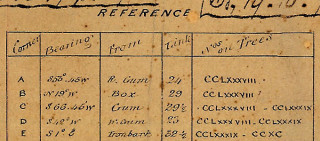 REFERENCE
Corner Bearing From Links Nos on Trees
A S 55° 45 W R. Gum 24 CCLXXXVIII
B N 19° W Box 29 CCLXXXVIII
C S 66.45 W Gum 29½ CCLXXXVIII - CCLXXXIX
D S 40° W W. Gum 25 CCLXXXVIII, CCLXXXIX
E S 1° E Ironbark 32½ CCLXXXIX - CCXC